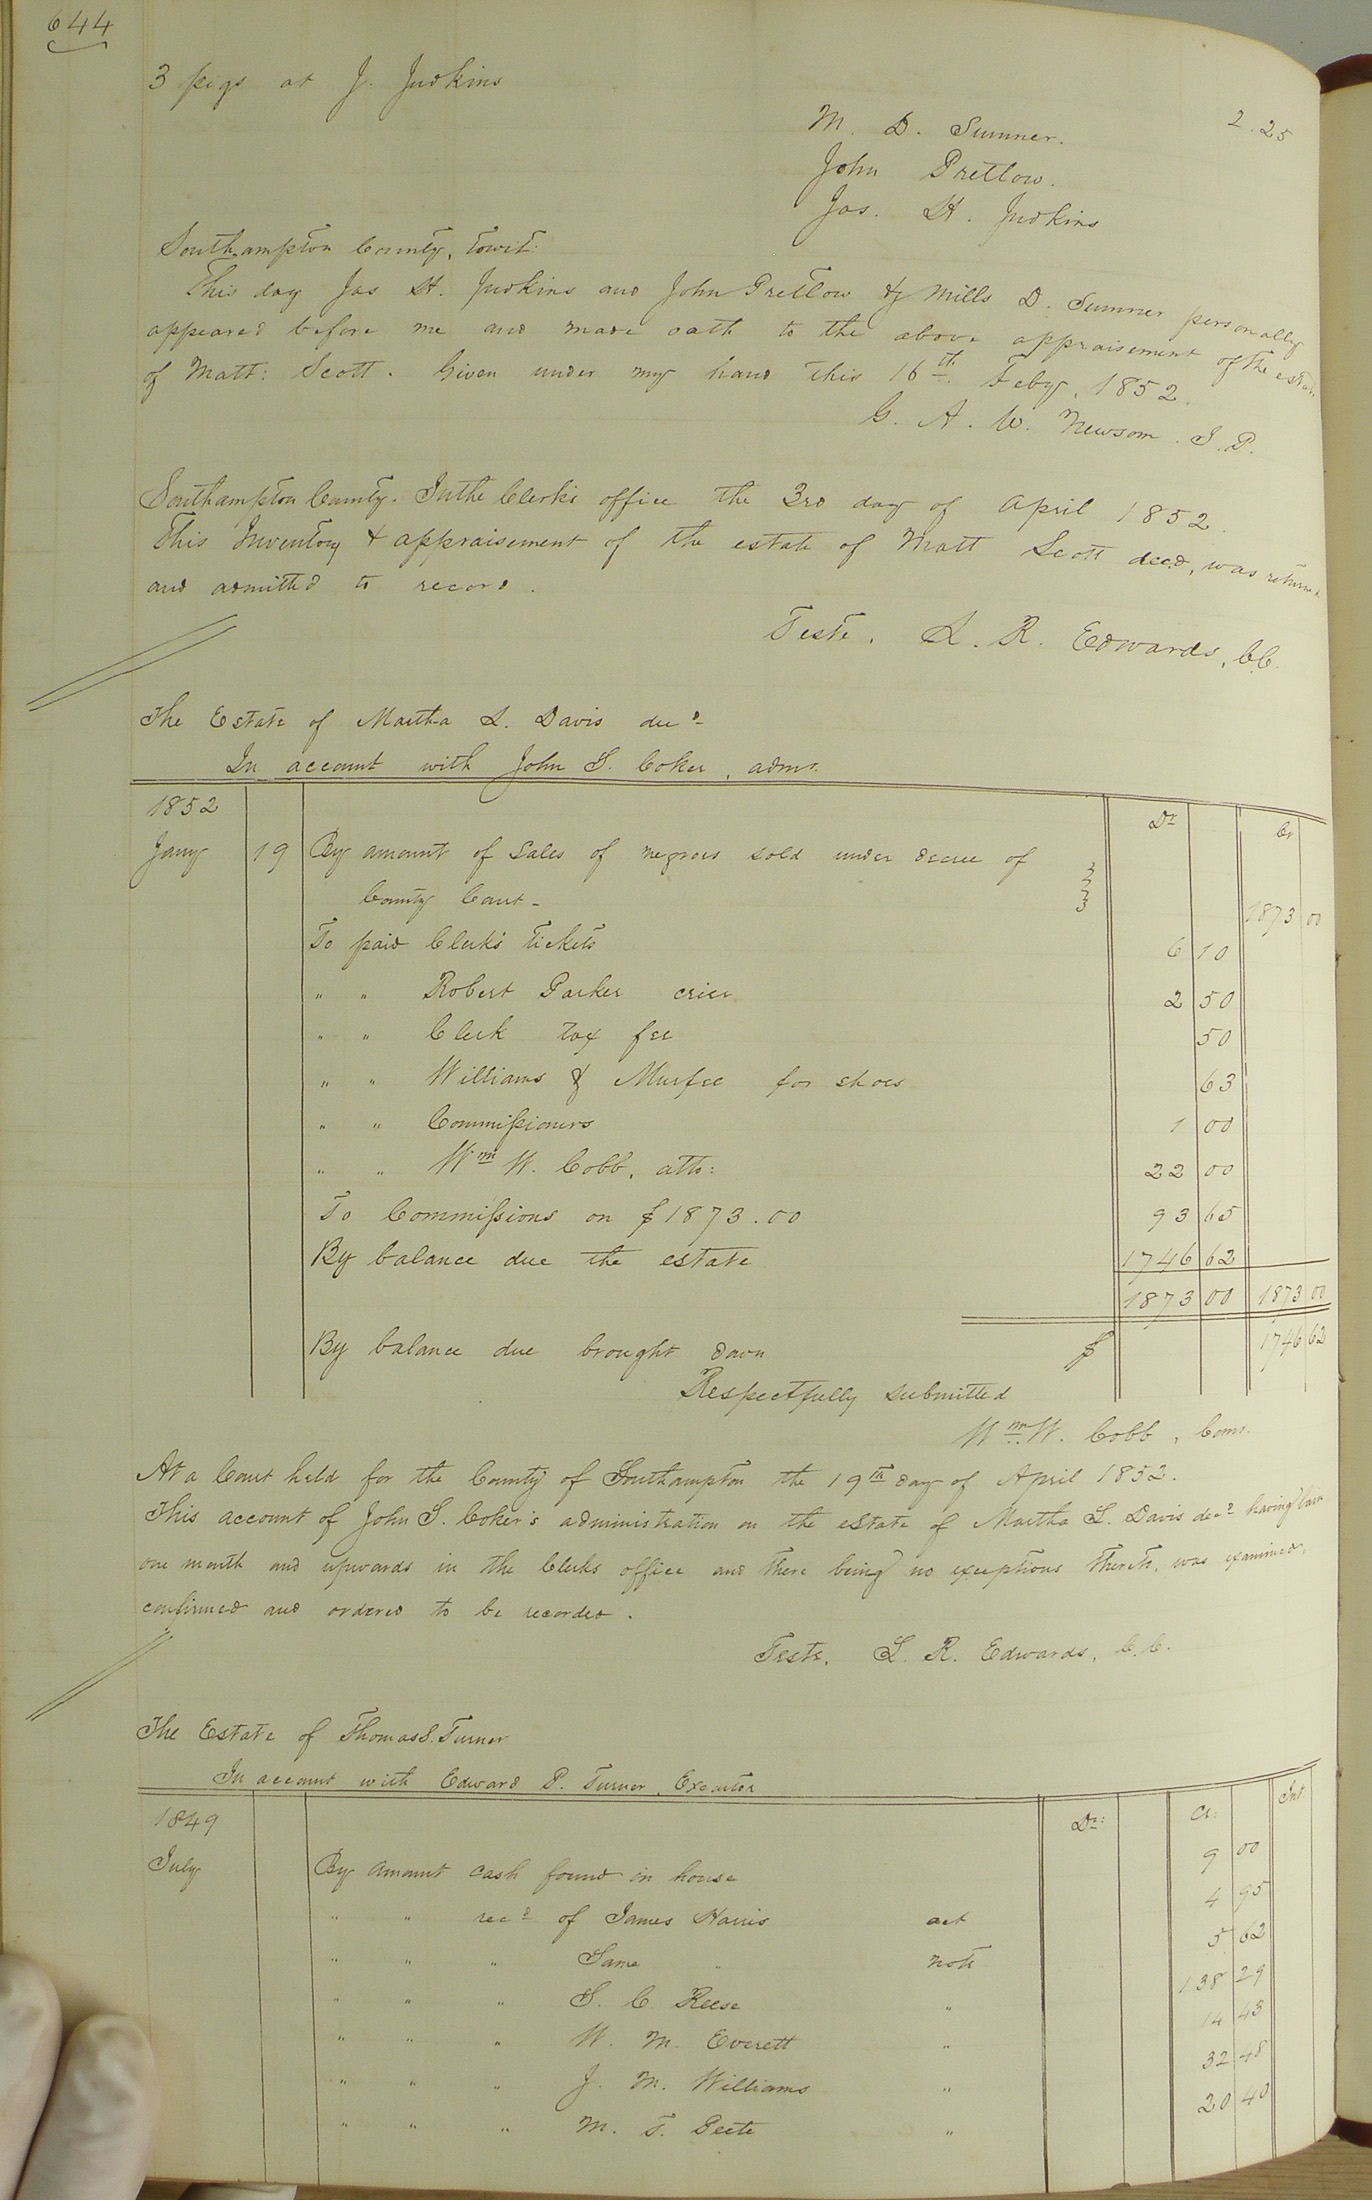 644
3 pigs at J. Judkins 2.25
M. D. Sumner.
John Pretlow.
Jas. H. Judkins
Southampton County, towit:
This day Jas H. Judkins and John Pretlow & Mills D. Sumner personally
appeared before me and made oath to the above appraisement of the estate
of Matt: Scott. Given under my hand this 16th Feby, 1852.
G. A. W. Newsom. J. P.
Southampton County. In the Clerk's office the 3rd day of April 1852.
This Inventory & appraisement of the estate of Matt Scott decd, was returned
and admitted to record.
Teste, L. R. Edwards, C.C.
The Estate of Martha L. Davis decd
In account with John S. Coker, admr.
1852 Dr Cr
Jany 19 By amount of sales of negroes sold under decree of
County Court - 1873 00
To paid Clerk's tickets 6 10
" " Robert Parker crier 2 50
" " Clerk tax fee 50
" " Williams & Murfee for shoes 63
" " Commissioners 1 00
" " Wm W. Cobb, atto: 22 00
To Commissions on $1873.00 93 65
By balance due the estate 1746 62
1873 00 1873 00
By balance due brought down $ 1746 62
Respectfully submitted
Wm W. Cobb, Comr.
At a Court held for the County of Southampton the 19th day of April 1852.
This account of John S. Coker's administration on the estate of Martha L. Davis decd having lain
one month and upwards in the Clerks office and there being no exceptions thereto, was examined,
confirmed and ordered to be recorded.
Teste, L. R. Edwards, C.C.
The Estate of Thomas S. Turner
In account with Edward P. Turner, Executor
1849 Dr: Cr: Int:
July By amount cash found in house 9 00
" " recd of James Harris act 4 95
" " " Same " note 5 62
" " " S. C. Reese " 138 29
" " " W. M. Everett " 14 43
" " " J. M. Williams " 32 48
" " " M. T. Peete " 20 40